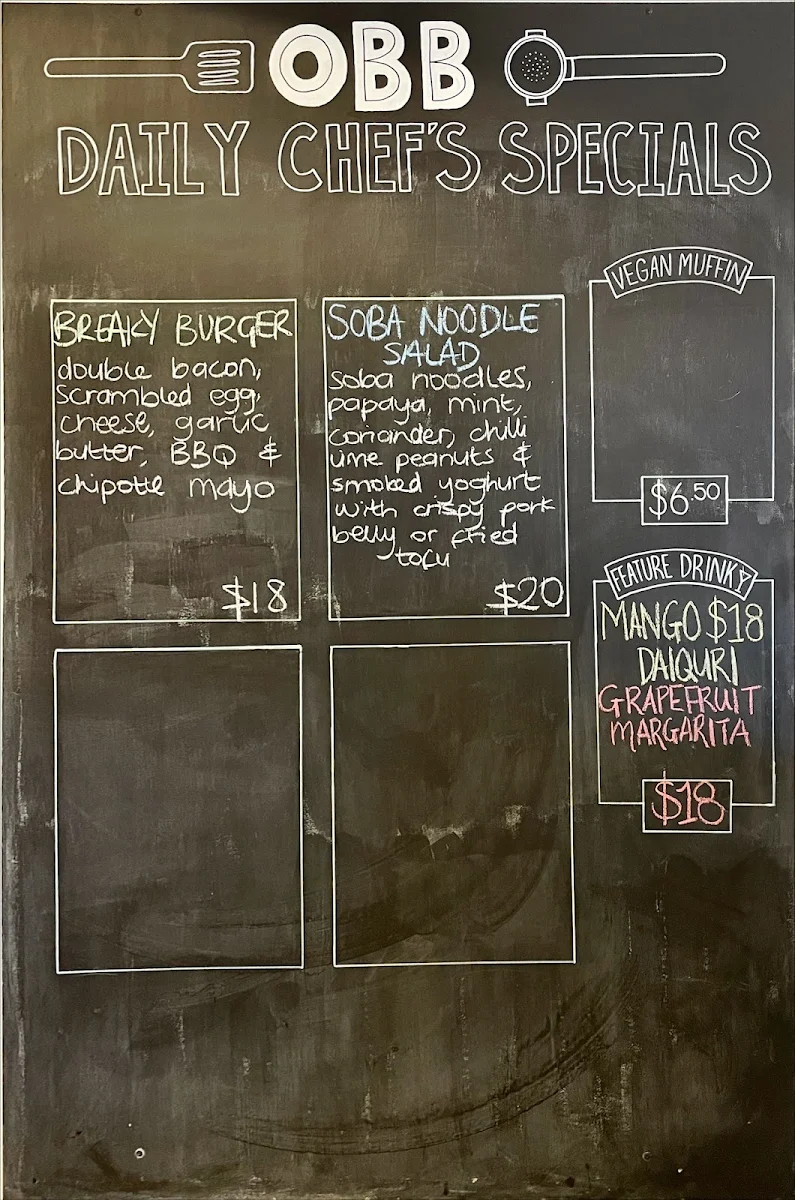 OBB
DAILY CHEF'S SPECIALS
BREAKY BURGER
double bacon,
scrambled egg,
cheese, garlic
butter, BBQ &
chipotle mayo
$18
SOBA NOODLE
SALAD
soba noodles,
papaya, mint,
coriander, chilli
lime peanuts &
smoked yoghurt
with crispy pork
belly or fried
tofu
$20
VEGAN MUFFIN
$6.50
FEATURE DRINKY
MANGO $18
DAIQURI
GRAPEFRUIT
MARGARITA
$18